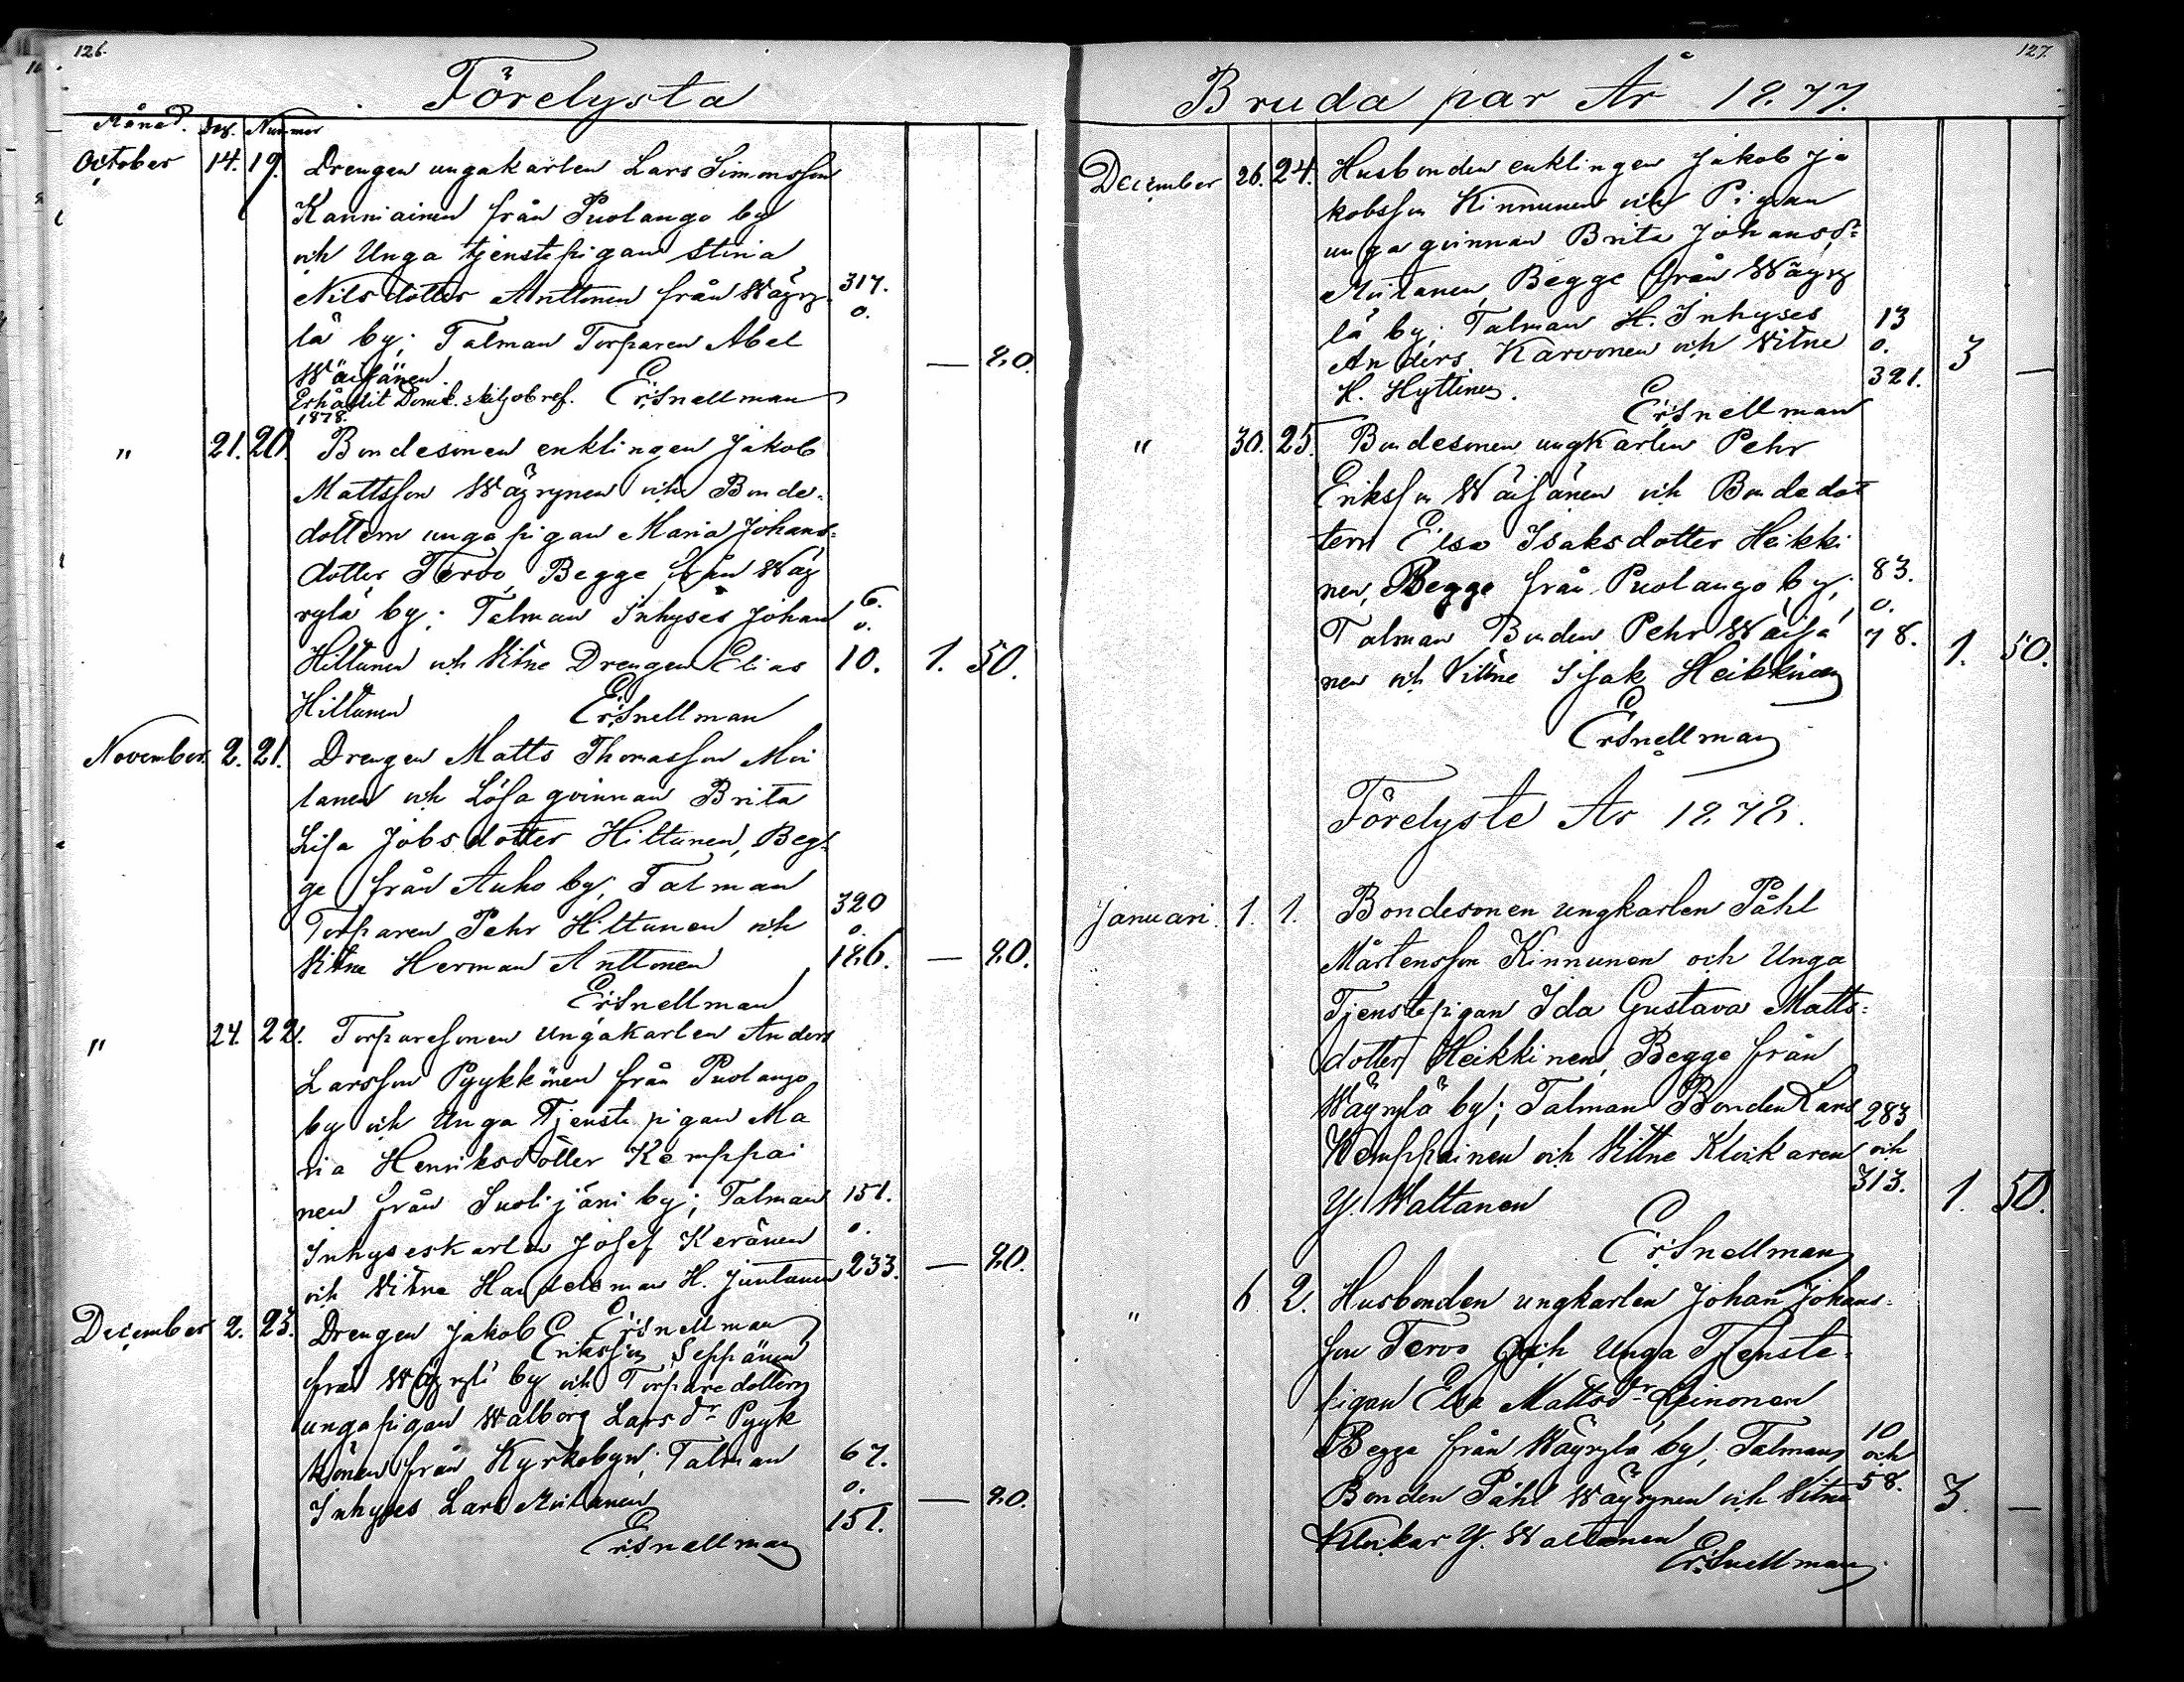 126.
Förelysta
Månad. Dag. Nummer
October 14. 19. Drengen ungakarlen Lars Simonsson
Kanniainen från Puolango by
och Unga tjenstepigan Stina
Nilsdotter Anttonen från Wäyry- 317.
lä by; Talman Torparen Abel o.
Wäisänen. — 80.
Erhållit Domk. skiljobref. ErSnellman
1878.
" 21. 20. Bondesonen enklingen Jakob
Mattsson Wäyrynen och Bonde-
dottern unga pigan Maria Johans-
dotter Tervo, Begge från Wäy
rylä by; Talman Inhyses Johan 6. o.
Hiltunen och Vitne Drengen Elias 10. 1. 50.
Hiltunen ErSnellman
November 2. 21. Drengen Matts Thomasson Moi
lanen och Lösa qvinnan Brita
Lisa Jobsdotter Hiltunen, Beg-
ge från Auho by; Talman
Torparen Pehr Hiltunen och 320 o.
Vitne Herman Anttonen 186. — 80.
ErSnellman
" 24. 22. Torparesonen Ungakarlen Anders
Larsson Pyykkönen från Puolango
by och Unga Tjenste pigan Ma
ria Henriksdotter Kemppai
nen från Suolijärvi by; Talman 151.
Inhyseskarlen Josef Keränen o.
och Vitne Handelsman H. Juntunen 233. — 80.
ErSnellman
December 2. 23. Drengen Jakob
Eriksson Seppänen
från Wäyrylä by och Torparedottern
ungapigan Walborg Larsdr Pyyk
könen från Kyrkobyn; Talman 67.
Inhyses Lars Moilanen o. — 80.
151.
ErSnellman
127.
Bruda par År 1877.
December 26. 24. Husbonden enklingen Jakob Ja
kobsson Kinnunen och Pigan
unga qvinnan Brita Johansdr
Moilanen, Begge från Wäyry
lä by; Talman H. Inhyses 13
Anders Karvonen och Vitne o. 3 —
H. Hyttinen. 321.
ErSnellman
" 30. 25. Bondesonen ungkarlen Pehr
Eriksson Wäisänen och Bondedot
tern Elsa Isaksdotter Heikki
nen, Begge från Puolango by; 83.
Talman Bonden Pehr Wäisä o. 78. 1. 50.
nen och Vitne Isak Heikkinen
ErSnellman
Förelyste År 1878.
Januari. 1. 1. Bondesonen ungkarlen Påhl
Mårtensson Kinnunen och Unga
Tjenstepigan Ida Gustava Matts-
dotter Heikkinen, Begge från
Wäyrylä by; Talman Bonden Lars 283
Kemppainen och Vittne Klockaren och
Y. Waltanen 313. 1. 50.
ErSnellman
" 6 2. Husbonden ungkarlen Johan Johans-
son Tervo och Unga Tjenste-
pigan Elsa Mattsdr Leinonen
Begge från Wäyrylä by; Talman 10 och
Bonden Påhl Wäyrynen och Vitne 58. 3. —
Klockar Y. Waltanen
ErSnellman